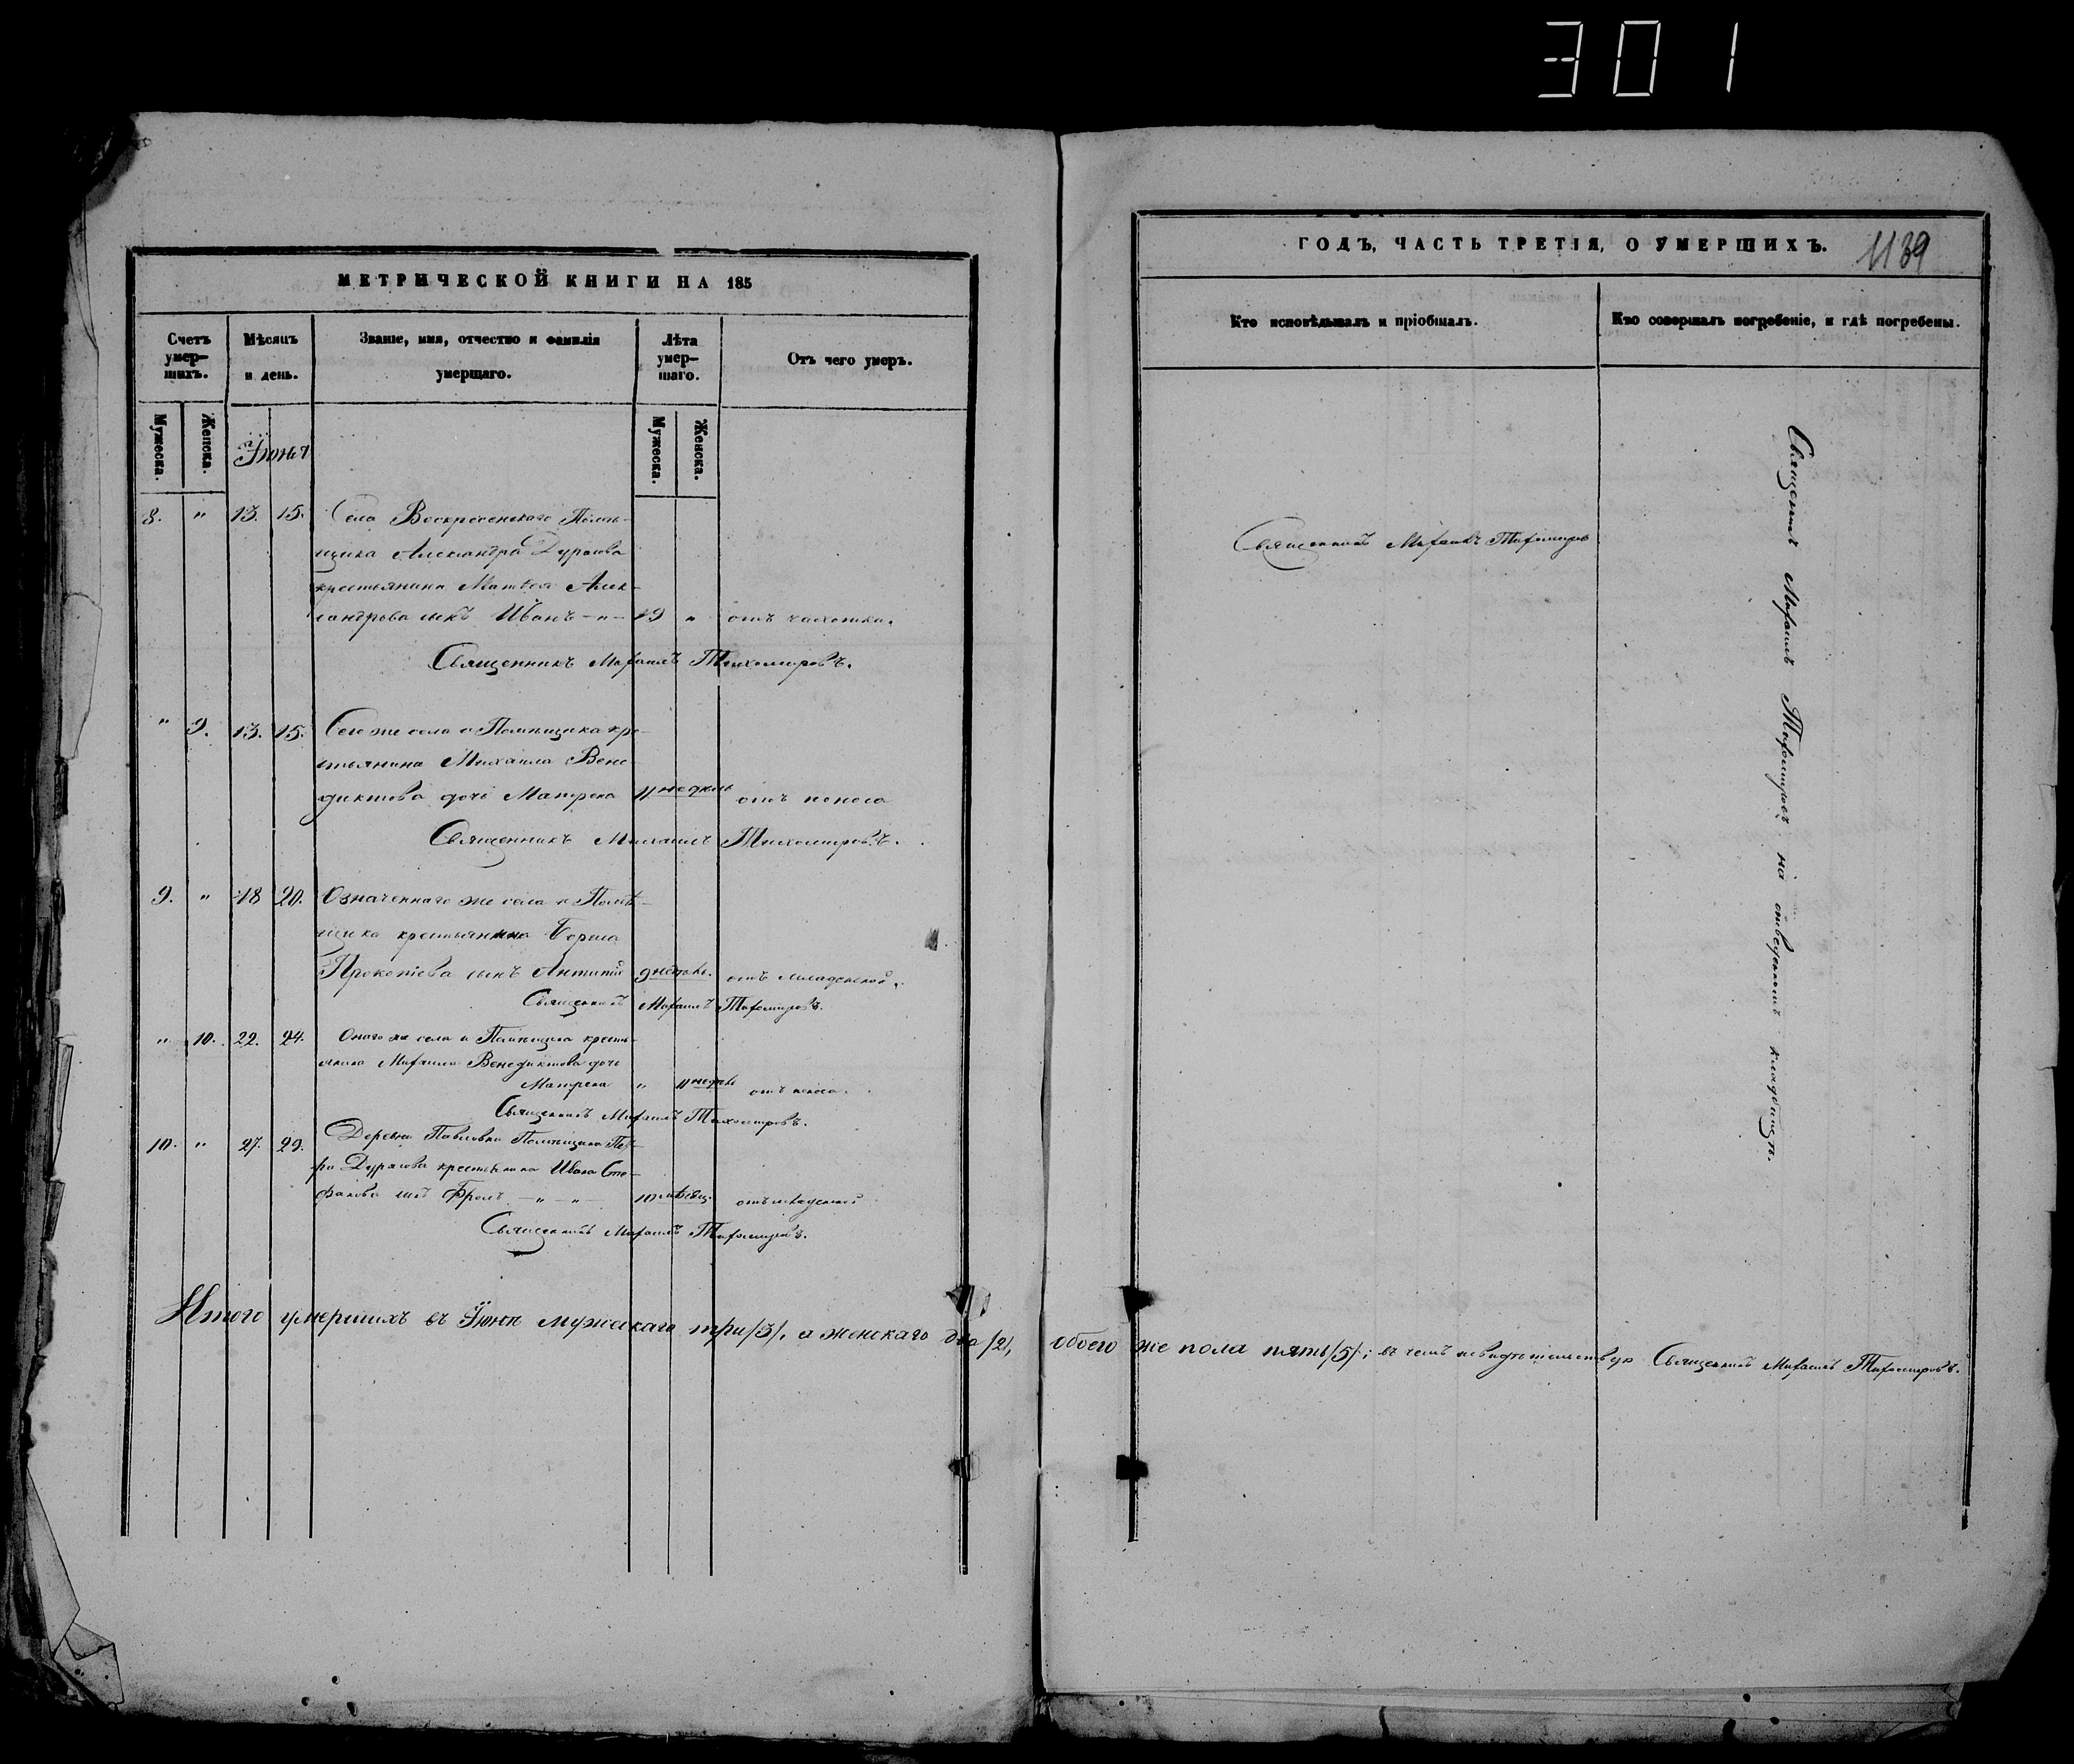 301
МЕТРИЧЕСКОЙ КНИГИ НА 185
Счетъ умер-шихъ.
Мужеска.
Женска.
Мѣсяцъ и день.
Званіе, имя, отчество и фамилія умершаго.
Лѣта умер-шаго.
Мужеска.
Женска.
Отъ чего умеръ.
Іюня
8. " 13. 15. Села Воскресенскаго Помѣ-
щика Александра Дурасова
крестьянина Матвея Алек-
сандрова сынъ Иванъ -"- 19 " отъ чахотки.
Священникъ Михаилъ Тихомировъ.
" 9. 13. 15. Сего же села и Помѣщика кре-
стьянина Михаила Вене-
диктова дочь Матрена 11 недѣль отъ поноса
Священникъ Михаилъ Тихомировъ.
9. " 18 20. Означеннаго же села и Помѣ-
щика крестьянина
Прокопіева сынъ Антипій 9 недѣль. отъ младенской.
Священникъ Михаилъ Тихомировъ.
" 10. 22. 24. Онаго же села и Помѣщика кресть-
янина Михаила Венедиктова дочь
Матрена " 11 недѣль отъ поноса.
Священникъ Михаилъ Тихомировъ.
10. " 27. 29. Деревни Павловки Помѣщика
Дурасова крестьянина Ивана Сте-
фанова сынъ Фролъ -"-"- 10 мѣсяц. отъ младенской
Священникъ Михаилъ Тихомировъ.
Итого умершихъ въ Іюнѣ мужескаго три /3/, а женскаго два /2/,
ГОДЪ, ЧАСТЬ ТРЕТІЯ, О УМЕРШИХЪ.
1139
Кто исповѣдывалъ и пріобщалъ.
Кто совершалъ погребеніе, и гдѣ погребены.
Священникъ Михаилъ Тихомировъ
Священникъ Михаилъ Тихомировъ на отведенномъ кладбищѣ.
обоего же пола пять /5/; въ чемъ и свидѣтельствую Священникъ Михаилъ Тихомировъ.